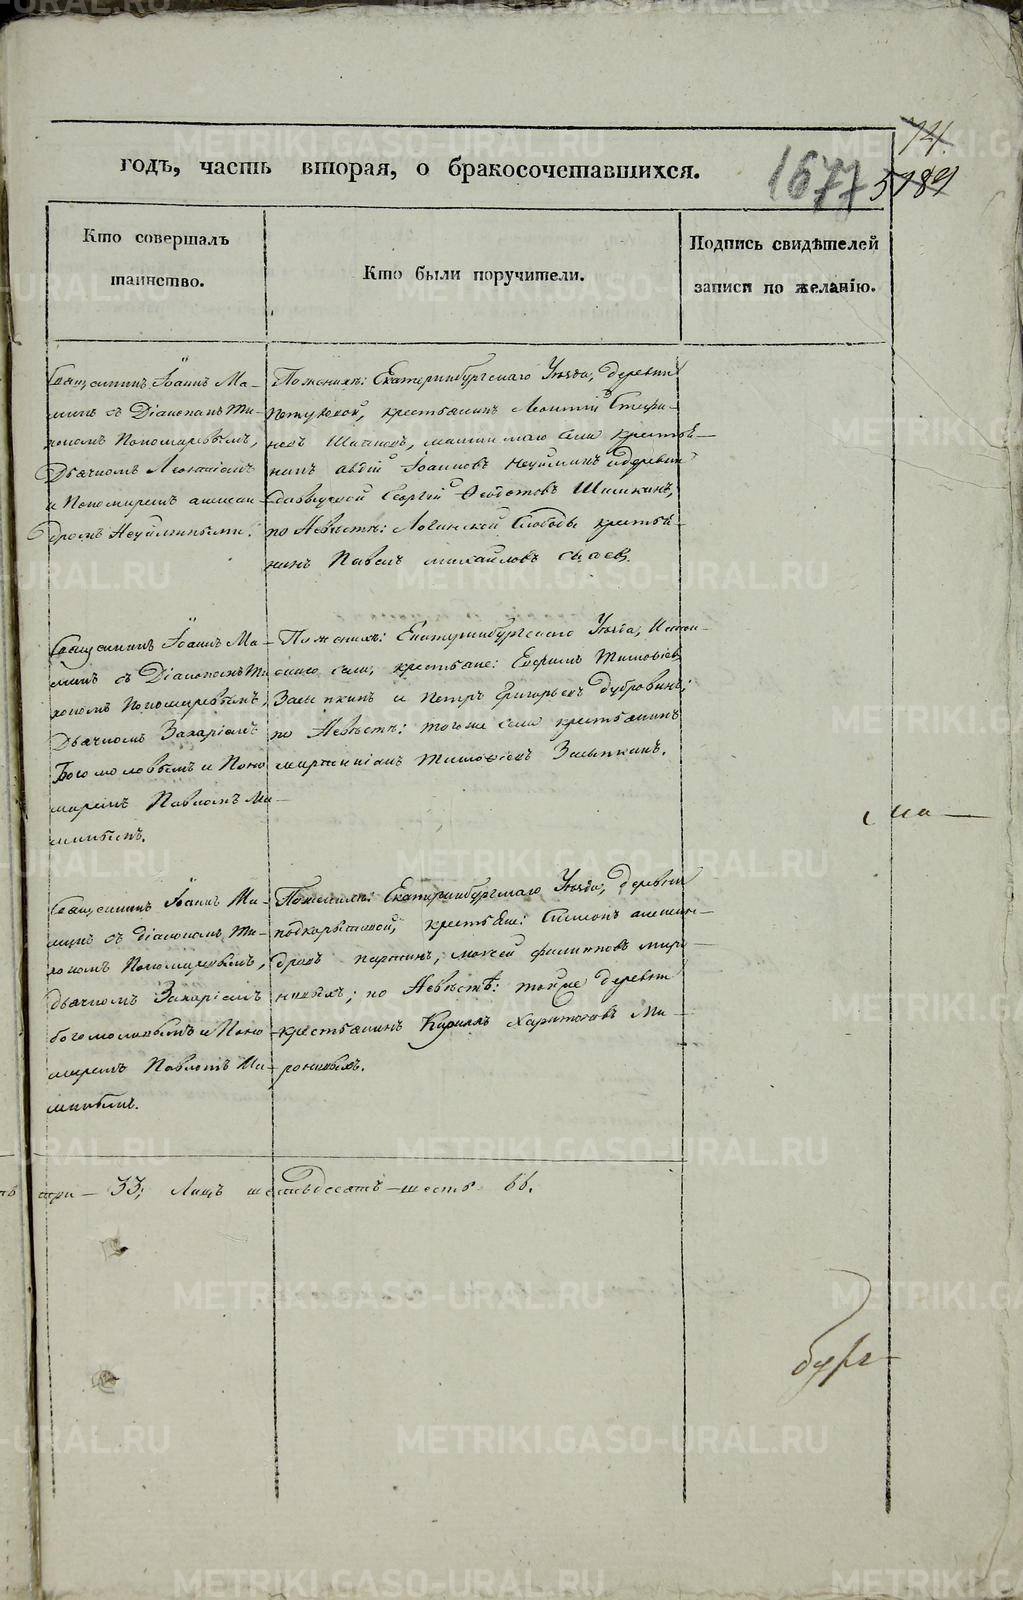 годъ, часть вторая, о бракосочетавшихся.
1677
74.
5789
Кто совершалъ
таинство.
Кто были поручители.
Подпись свидѣтелей
записи по желанію.
Священникъ Іоаннъ Ма-
минъ съ Діакономъ Ти-
хономъ Пономаревымъ,
Дьячкомъ
и Пономаремъ алексан-
дромъ
По женихѣ: Екатеринбургскаго Уѣзда, деревни
крестьянинъ Леонтій Стефа-
новъ села крестья-
нинъ авдій Іоанновъ и деревни
Георгій Ѳедотовъ Шишкинъ,
по Невѣстѣ: Логиновской Слободы крестья-
нинъ Павелъ михайловъ
Священникъ Іоаннъ Ма-
минъ съ Діакономъ Ти-
хономъ Пономаревымъ,
Дьячкомъ Захаріемъ
Богомоловымъ и Поно-
маремъ Павломъ Ма-
минымъ.
По женихѣ: Екатеринбургскаго Уѣзда,
села, крестьяне: Ефремъ Тимофѣевъ
Засыпкинъ и Петръ Григорьевъ Дубровинъ;
по Невѣстѣ: тогоже села крестьянинъ
мартиніанъ Тимофѣевъ Засыпкинъ.
Священникъ Іоаннъ Ма-
минъ съ діакономъ Ти-
хономъ Пономаревымъ,
дьячкомъ Захаріемъ
богомоловымъ и Поно-
маремъ Павломъ Ма-
минымъ.
По женихѣ: Екатеринбургскаго Уѣзда, деревни
подкорытовой, крестьяне: Симеонъ алексан-
дровъ паршинъ, моисей филиповъ миро-
новыхъ; по Невѣстѣ: тойже деревни
крестьянинъ Кириллъ Харитоновъ Ми-
роновыхъ.
три – 33; Лицъ шестьдесятъ–шесть 66.
Ма–
бург–
METRIKI.GASO-URAL.RU